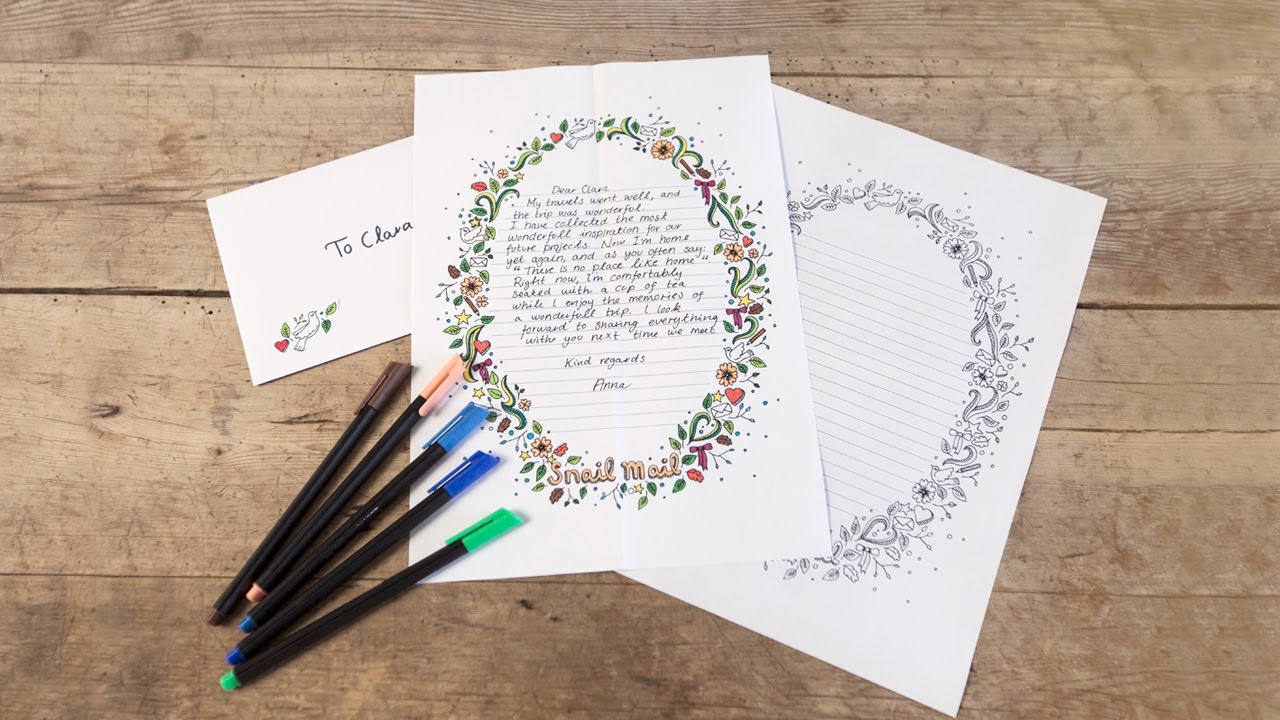 To Clara
Dear Clara
My travels went well, and
the trip was wonderful.
I have collected the most
wonderfull inspiration for our
future projects. Now I'm home
yet again, and as you often say:
"There is no place like home"
Right now, I'm comfortably
seated with a cup of tea
while I enjoy the memories of
a wonderfull trip. I look
forward to sharing everything
with you next time we meet
Kind regards
Anna
Snail Mail